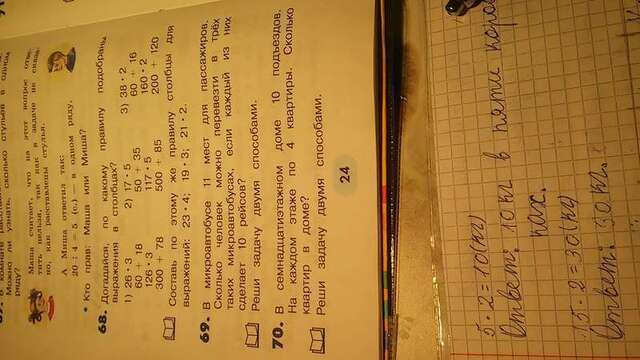 67. В комнате расстав
Можно ли узнать, сколько стульев в одном
ряду?
Маша считает, что на этот вопрос отве-
тить нельзя, так как в задаче не сказа-
но, как расставлены стулья.
А Миша ответил так:
20 : 4 = 5 (с.) — в одном ряду.
• Кто прав: Маша или Миша?
68. Догадайся, по какому правилу подобраны
выражения в столбцах?
1) 26 · 3 2) 17 · 5 3) 38 · 2
60 + 18 50 + 35 60 + 16
126 · 3 117 · 5 160 · 2
300 + 78 500 + 85 200 + 120
Составь по этому же правилу столбцы для
выражений: 23 · 4; 19 · 3; 21 · 2.
69. В микроавтобусе 11 мест для пассажиров.
Сколько человек можно перевезти в трёх
таких микроавтобусах, если каждый из них
сделает 10 рейсов?
Реши задачу двумя способами.
70. В семнадцатиэтажном доме 10 подъездов.
На каждом этаже по 4 квартиры. Сколько
квартир в доме?
Реши задачу двумя способами.
24
5 · 2 = 10 (кг)
Ответ: 10 кг в пяти короб
ках.
15 · 2 = 30 (кг)
Ответ: 30 кг.